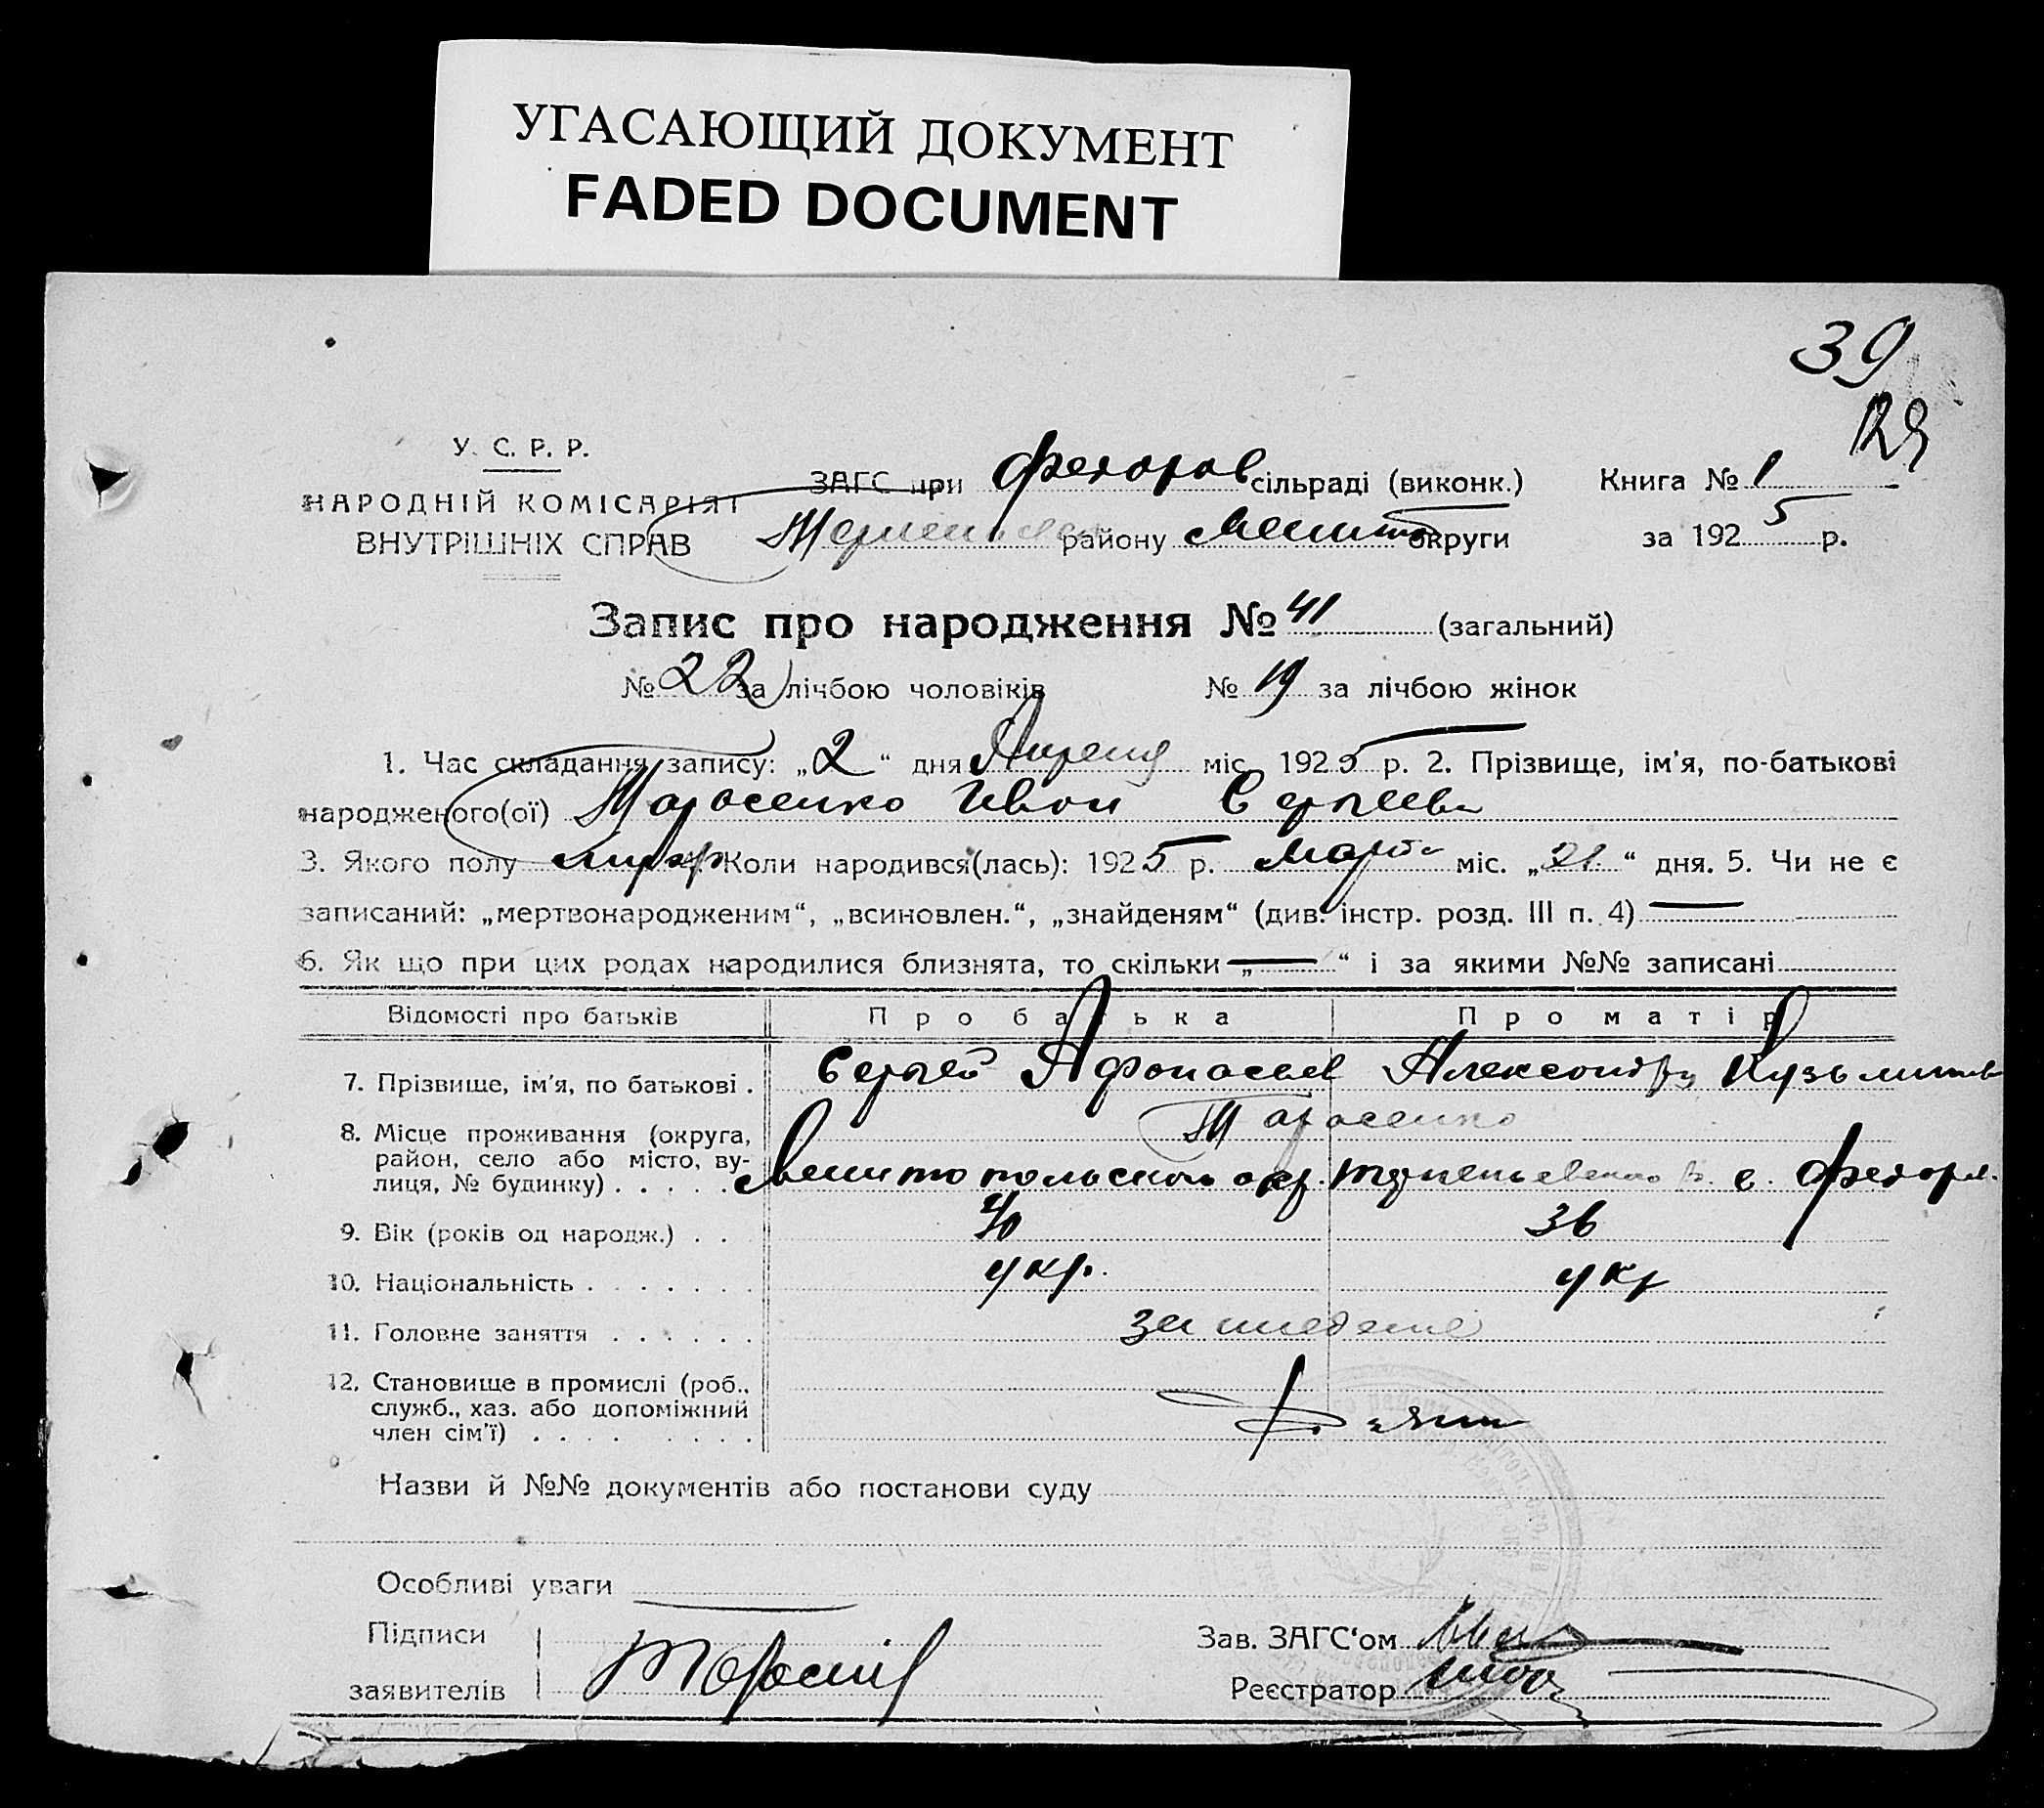 УГАСАЮЩИЙ ДОКУМЕНТ
FADED DOCUMENT
39
129
У. С. Р. Р.
НАРОДНІЙ КОМІСАРІЯТ
ВНУТРІШНІХ СПРАВ
ЗАГС при Федоров сільраді (виконк.)
району Мелито округи
Книга № 1
за 1925 р.
Запис про народження № 41 (загальний)
№ 22 за лічбою чоловіків № 19 за лічбою жінок
1. Час складання запису: „2“ дня Апреля міс. 1925 р. 2. Прізвище, ім'я, по-батькові
народженого(ої) Тарасенко Иван Сергеев
3. Якого полу 4. Коли народився(лась): 1925 р. Марта міс. „21“ дня. 5. Чи не є
записаний: „мертвонародженим“, „всиновлен.“, „знайденям“ (див. інстр. розд. III п. 4) —
6. Як що при цих родах народилися близнята, то скільки „—“ і за якими №№ записані
Відомості про батьків Про батька Про матір
7. Прізвище, ім'я, по батькові . Сергей Афонасьев Александра Кузьминов
Тарасенко
8. Місце проживання (округа, район, село або місто, вулиця, № будинку) . . . . . Мелитопольской окр. с. Федоров.
9. Вік (років од народж.) . . 40 36
10. Національність . . . . . . . укр. укр
11. Головне заняття . . . . . .
12. Становище в промислі (роб., служб., хаз. або допоміжний член сім'ї) . . . . . . . .
Назви й №№ документів або постанови суду
Особливі уваги
Підписи
заявителів
Зав. ЗАГС‘ом
Реєстратор